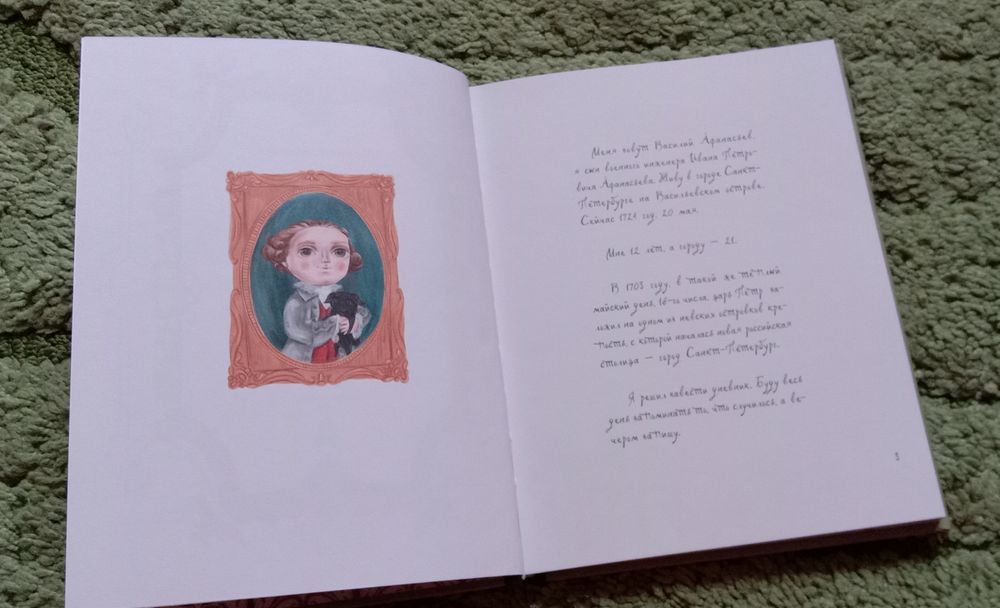 Меня зовут Василий Афанасьев,
я сын военного инженера Ивана Петро-
вича Афанасьева. Живу в городе Санкт-
Петербурге на Васильевском острове.
Сейчас 1724 год, 20 мая.
Мне 12 лет, а городу — 21.
В 1703 году, в такой же тёплый
майский день, 16-го числа, царь Пётр за-
ложил на одном из невских островков кре-
пость, с которой началась новая российская
столица — город Санкт-Петербург.
Я решил завести дневник. Буду весь
день запоминать то, что случилось, а ве-
чером запишу.
3